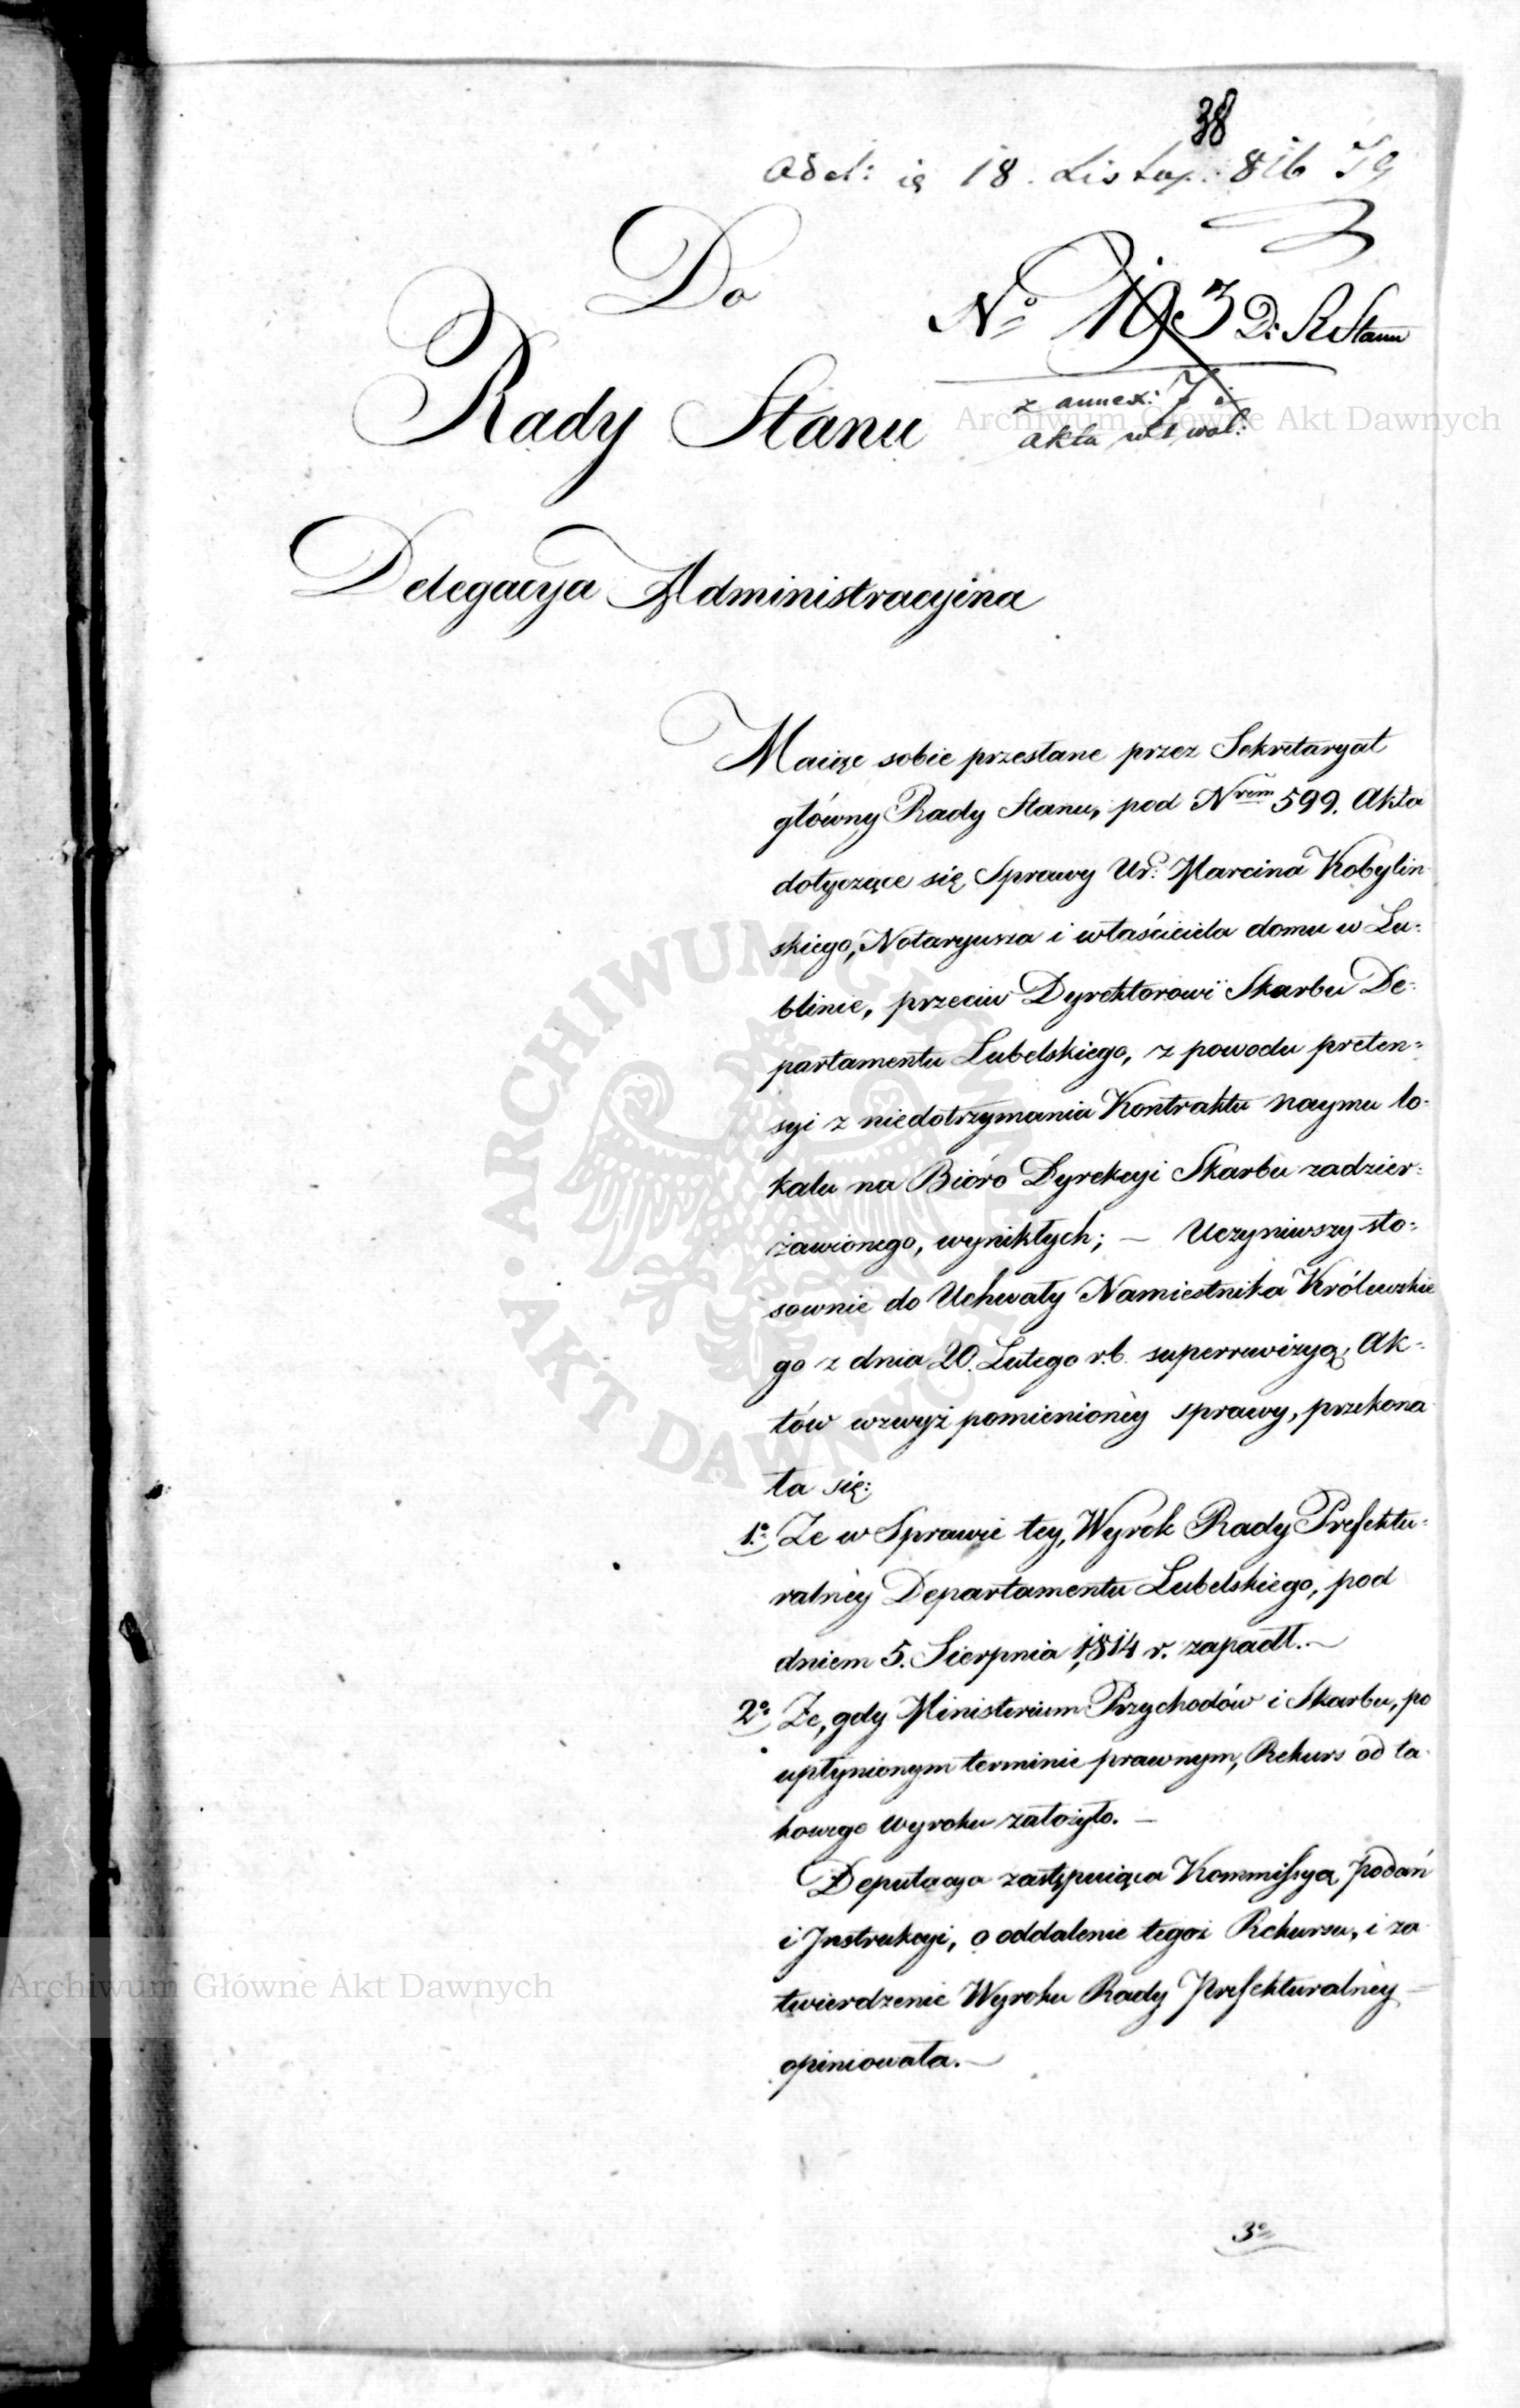 38
Odd: ię 18. Listop: 816
Do
Nº 193 D: R Stanu
Rady Stanu
z annex: 7 i
akta w 1 wol:
Delegacya Administracyina
Maiąc sobie przesłane przez Sekretaryat
główny Rady Stanu, pod Nrem 599. Akta
dotyczące się Sprawy Ur: Marcina Kobylin
skiego, Notaryusza i właściciela domu w Lu-
blinie, przeciw Dyrektorowi Skarbu De-
partamentu Lubelskiego, z powodu preten-
syi z niedotrzymania Kontraktu naymu lo-
kalu na Bióro Dyrekcyi Skarbu zadzier-
żawionego, wynikłych; — Uczyniwszy sto-
sownie do Uchwały Namiestnika Królewskie
go z dnia 20. Lutego r.b. superrewizyą, Ak-
tów wzwyż pomienionéy sprawy, przekona
ła się:
1º Ze w Sprawie tey, Wyrok Rady Prefektu-
ralnéy Departamentu Lubelskiego, pod
dniem 5. Sierpnia 1814 r. zapadł.—
2º Ze, gdy Ministerium Przychodów i Skarbu, po
upłynionym terminie prawnym, Rekurs od ta-
kowego Wyroku założyło. —
Deputacya zastępuiąca Kommissyą Podań
i Instrukcyi, o oddalenie tegoż Rekursu, i za-
twierdzenie Wyroku Rady Prefekturalnéy —
opiniowała.—
3º
Archiwum Główne Akt Dawnych
ARCHIWUM GŁÓWNE • AKT DAWNYCH •
Archiwum Główne Akt Dawnych